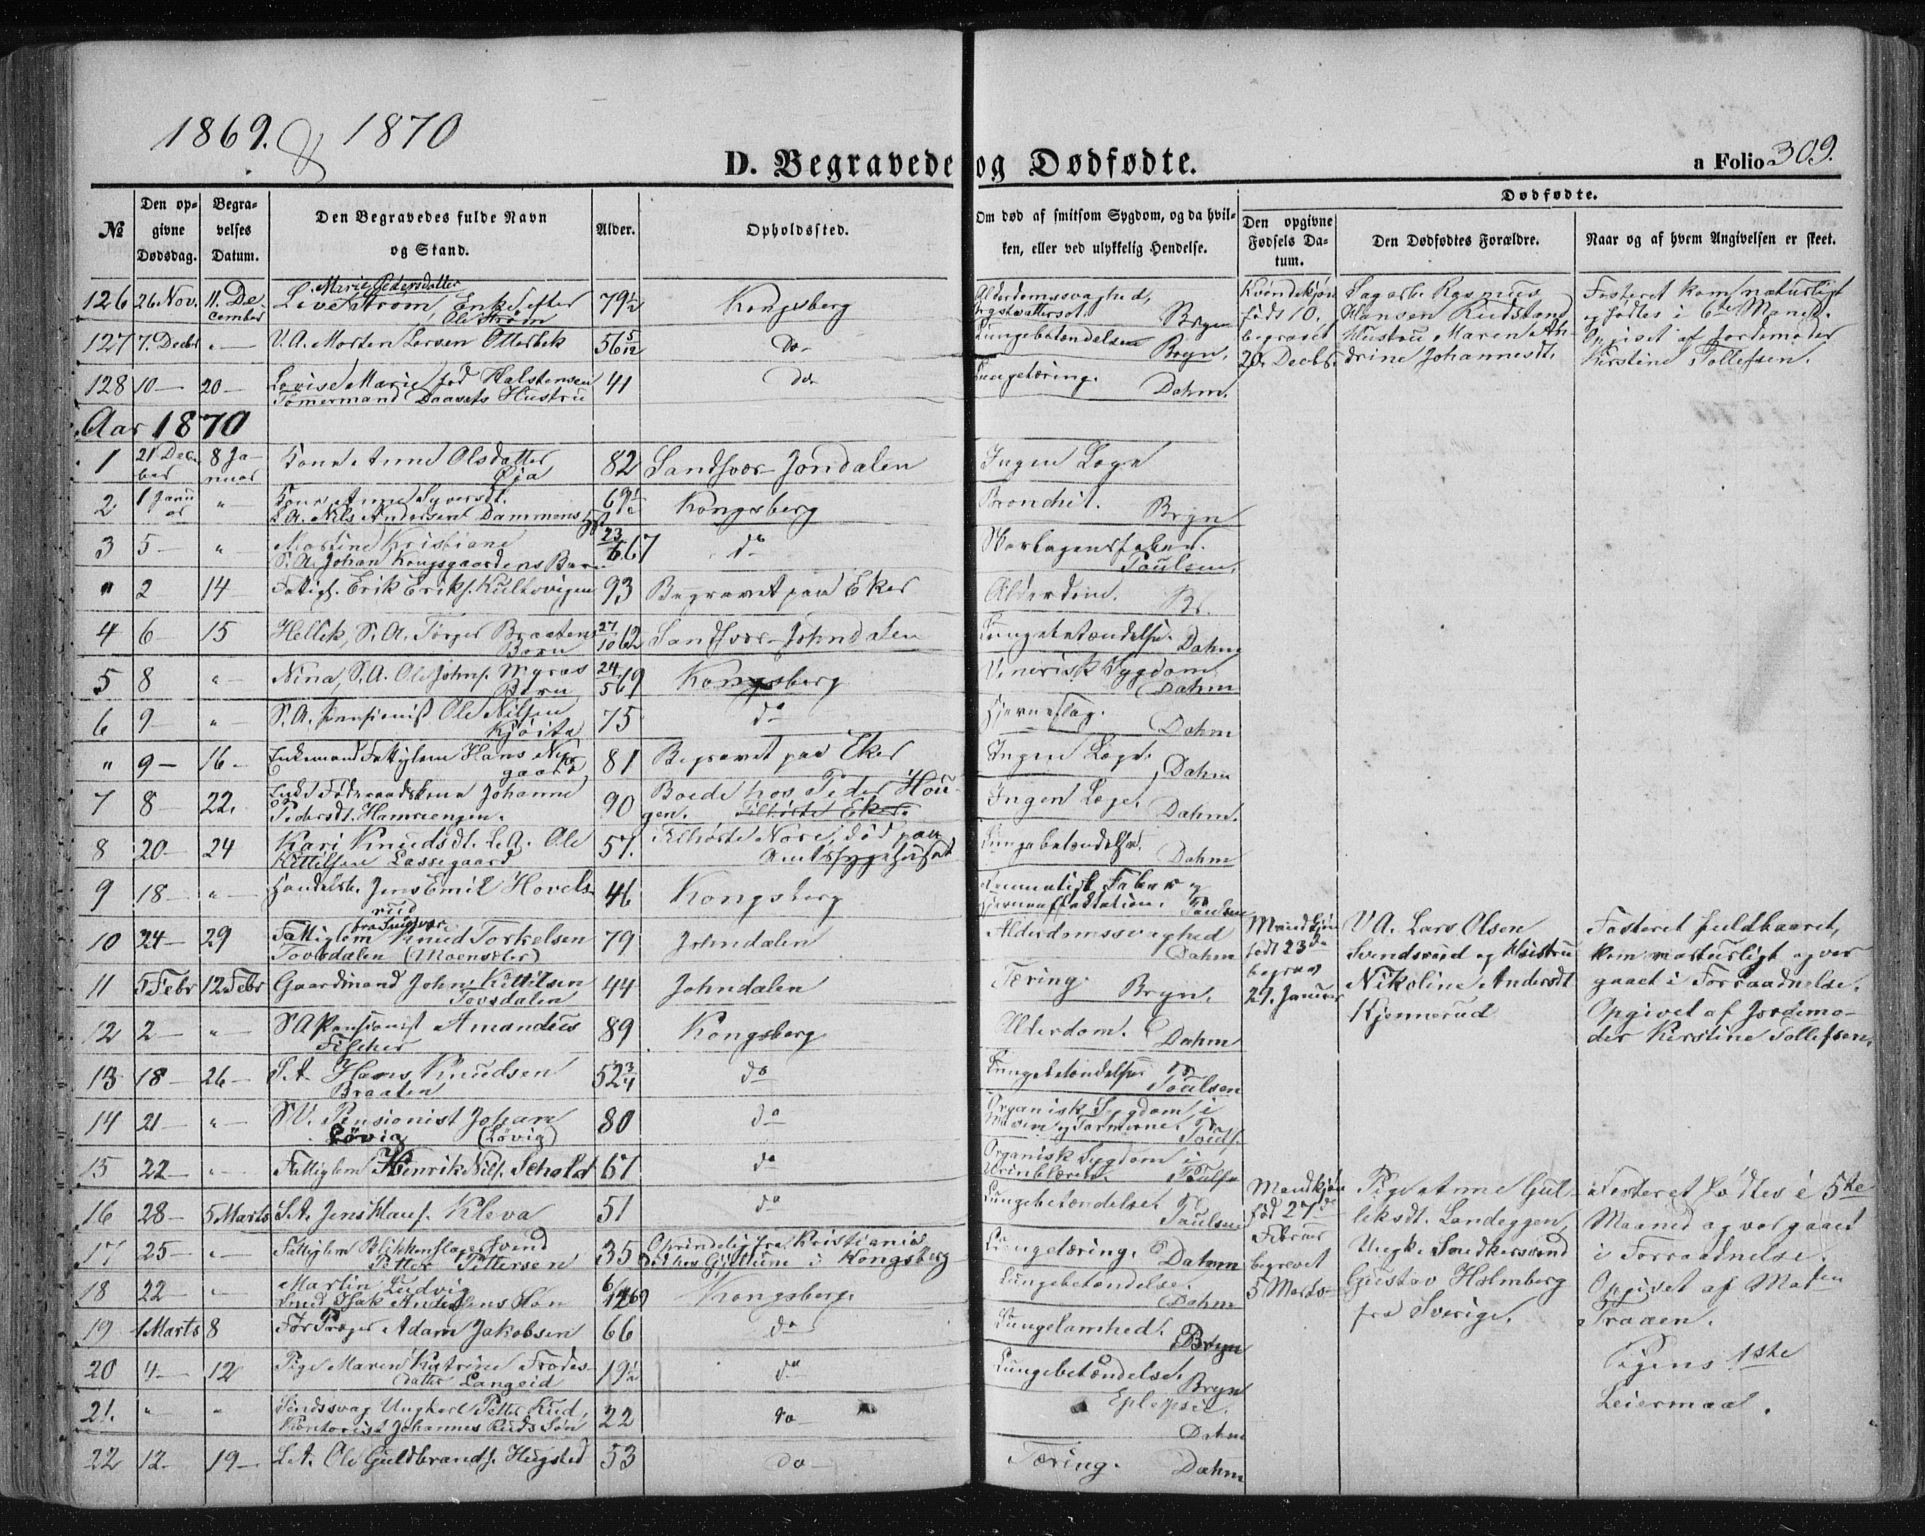 1869. & 1870
D. Begravede og Dødfødte.
a Folio 309.
№
Den opgivne Dødsdag.
Begravelses Datum.
Den Begravedes fulde Navn og Stand.
Alder.
Opholdssted.
Om død af smitsom Sygdom, og da hvilken, eller ved ulykkelig Hendelse.
Dødfødte.
Den opgivne Fødsels Datum.
Den Dødfødtes Forældre.
Naar og af hvem Angivelsen er skeet.
126 26 Nov. 11. December Marie Pedersdatter Enke efter Ole Strøm 79½ Kongsberg Alderdomssvaghed, Bryn
127 7. Decbr " V.A. Morten Larsen Otterbek 56 5/12 do Lungebetændelse Bryn.
128 10 — 20 — Lovise Marie Halstensen Tømermand Hustru 41 do Lungetæring. Dahm.
født 10. begravet 20. Decbr.
Rasmus Hansen Rudstand Hustru Maren Andrine Johannesdt.
Fosteret kom naturligt og fødtes i 6te Maaned. Opgivet af Jordemoder Kirstine Tollefsen.
Aar 1870
1 21 December 8 Januar Kone Anne Olsdatter 82 Sandsvær Jondalen Ingen Læge
2 1 Januar " Kone Anne Syversdt. S.A. Nils Andersen Dammens 69½ Kongsberg Bronchit. Bryn
3 5 — " Martine Kristiane S.A. Johan Kongsgaardens Barn 23/6 67 do Paulsen.
" 2 14 Fattigl. Erik Eriks. 93 Begravet paa Eker Alderdom. Br.
4 6 — 15 Hellek, S.A. Torger Braatens Barn 27/10 62 Sandsvær Johndalen Lungebetændelse. Dahm
5 8 " Nina, S.A. Ole Johns. Myras Barn 24/5 69 Kongsberg Venerisk Sygdom Dahm
6 9 — " S.A. Pensionist Ole Nilsen Kjøita 75 do Hjerneslag. Dahm
" 9 — 16 — Enkemand Fattiglem Hans 81 Begravet paa Eker Ingen Læge. Dahm
7 8 — 22. Føderaadskone Johanne Pedersdt. Hamrengen. 90 Boede hos Peder Hougen. Tilhørte Eker. Ingen Læge. Dahm.
8 20 — 24 Kari Knudsdt. L.A. Ole Kittilsen Lassegaard 57. Tilhørte Nore, død paa Amtssygehuset Lungebetændelse. Dahm
9 18 — " Handelsb. Jens Emil Hovelsrud 46 Kongsberg Reumatisk Feber og Paulsen
10 24 — 29 Fattiglem Knud Torkelsen Tovsdalen (Moensæter) 79 Johndalen Alderdomssvaghed Dahm
Mandkjøn født 23de begrav 29. Januar
V.A. Lars Olsen Svendsrud og Hustru Nikoline Andersdt Kjennerud
Fosteret fuldbaaret, kom naturligt og var gaaet i Forraadnelse. Opgivet af Jordemoder Kirstine Tollefsen.
11 5 Febr 12 Febr Gaardmand John Kittilsen Tovsdalen 44 Johndalen Tæring. Bryn.
12 2 — " S.A Pensionist Amandus Filcher 89 Kongsberg Alderdom. Dahm
13 18 — 26 — S.A. Hans Knudsen Braaten 52¾ do Lungebetændelse Paulsen
14 21 — " S.V. Pensionist Johan Løvig (Løvig) 80 do Organisk Sygdom i Maven og Tarmerne. Pauls.
15 22 — " Fattiglem Henrik Nils. Schald 67 do Organisk Sygdom i Urinblæren. Paulsn
16 28 — 5 Marts S.A. Jens Klaus. Kleva 51 do Lungebetændelse. Paulsen
17 25 — " Fattiglem Blikkenslager Svend Petter Pettersen 35 Oprindelig fra Kristiania i Kongsberg Lungetæring. Dahm
18 22 — " Martin Ludvig Smed Isak Andersens Søn 6/12 69 Kongsberg. Lungebetændelse. Dahm
Mandkjøn født 27de Februar begravet 5 Marts
Pige Anne Gulleksdt. Landeggen, Ungk. Snedkersvend Gustav Holmberg fra Sverige.
Fosteret fødtes i 5te Maaned og var gaaet i Forraadnelse. Opgivet af Maren Fraaen. Pigens 1ste Leiermaal.
19 1 Marts 8 Adam Jakobsen 66 do Lungelamhed. Bryn
20 4 — 12 Pige Maren Katrine Frodesdatter Langeid 19½ do Lungebetændelse. Bryn
21. " " Sindssvag Ungkarl Petter Rud, Kontorist Johannes Ruds Søn 22 do Eplepsie. Dahm
22 12 — 19 — S.A. Ole Guldbrands. Hugsted 53 do Tæring. Dahm